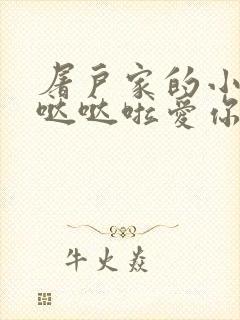 屠户家的小
哒哒啦爱你
牛火焱